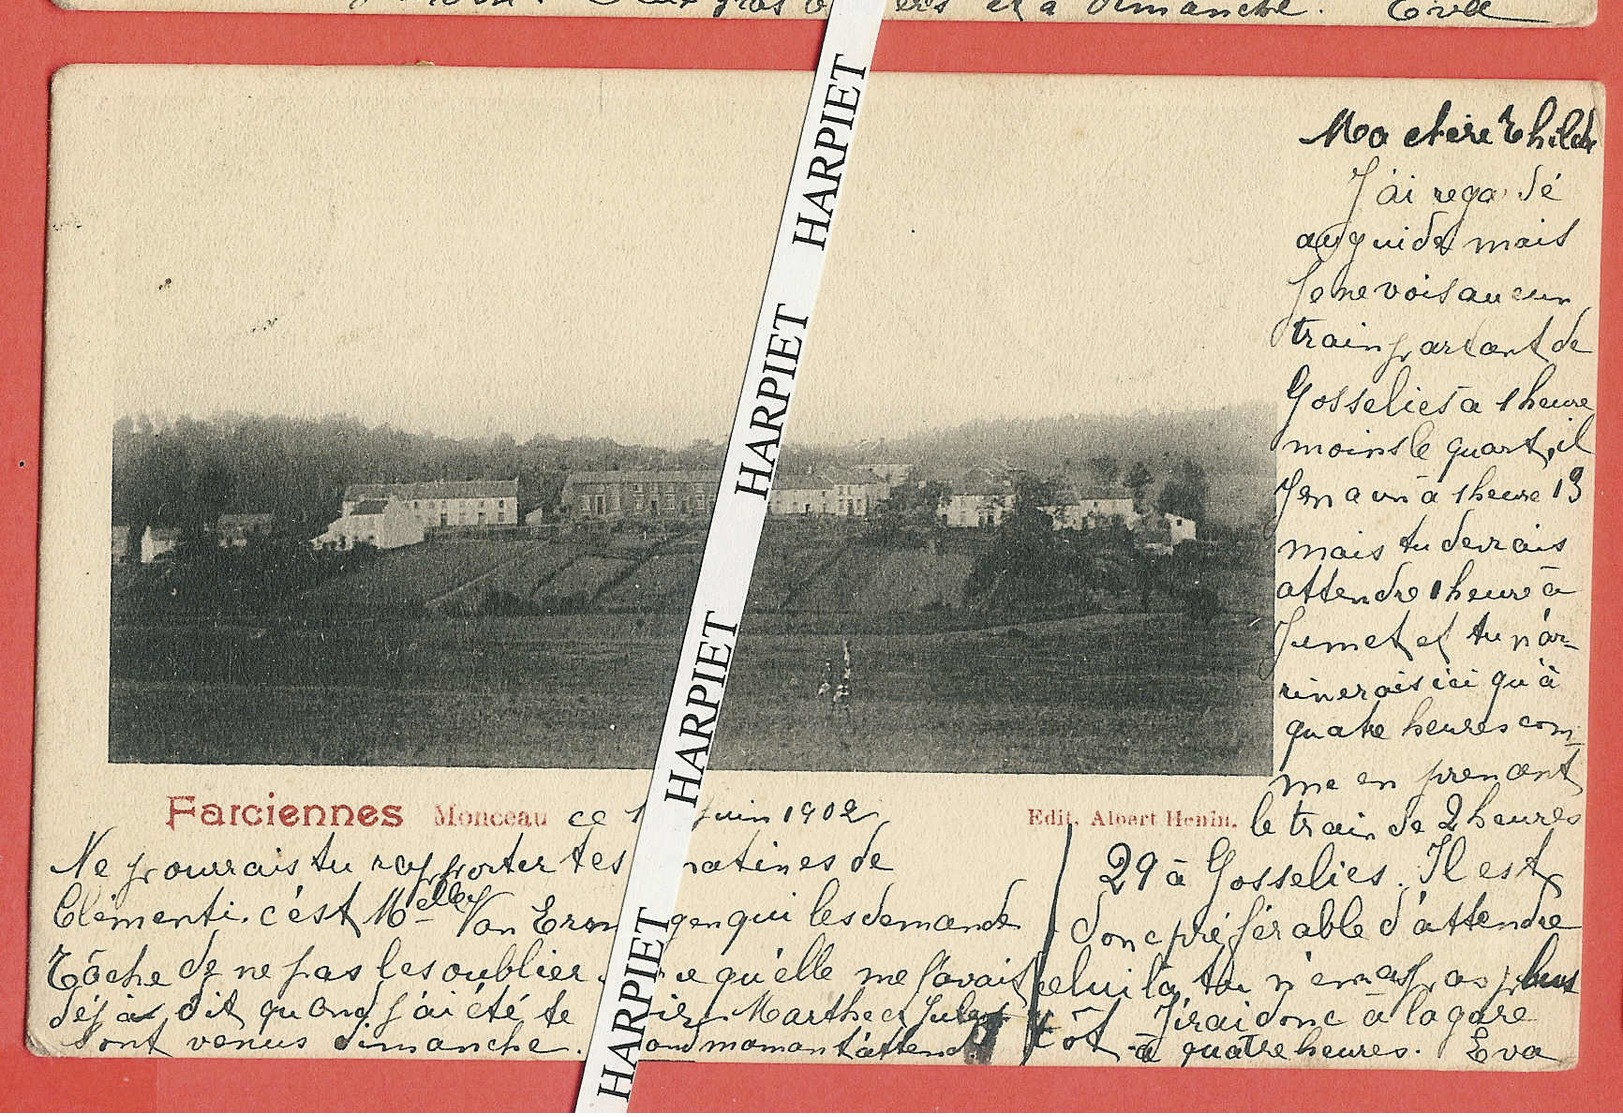 dimanche.
Ma chère Thilde
J'ai regardé
au guide mais
je ne vois aucun
train partant de
Gosselies à 1 heure
moins le quart, il
y en a un à 1 heure 13
mais tu devrais
attendre 1 heure à
Jumet et tu n'ar-
riverais ici qu'à
quatre heures com-
me en prenant
le train de 2 heures
29 à Gosselies. Il est
donc préférable d'attendre
celui là, tu n'en as pas plus
tôt. J'irai donc à la gare
à quatre heures. Eva
Farciennes Monceau ce 1 juin 1902
Edit. Albert Henin.
Ne pourrais tu rapporter tes matines de
Clémenti. c'est Melle Van Erm gen qui les demande
Tâche de ne pas les oublier qu'elle me l'avait
déjà dit quand j'ai été te Marthe et Jules
sont venus dimanche. maman t'attend
HARPIET
HARPIET
HARPIET
HARPIET